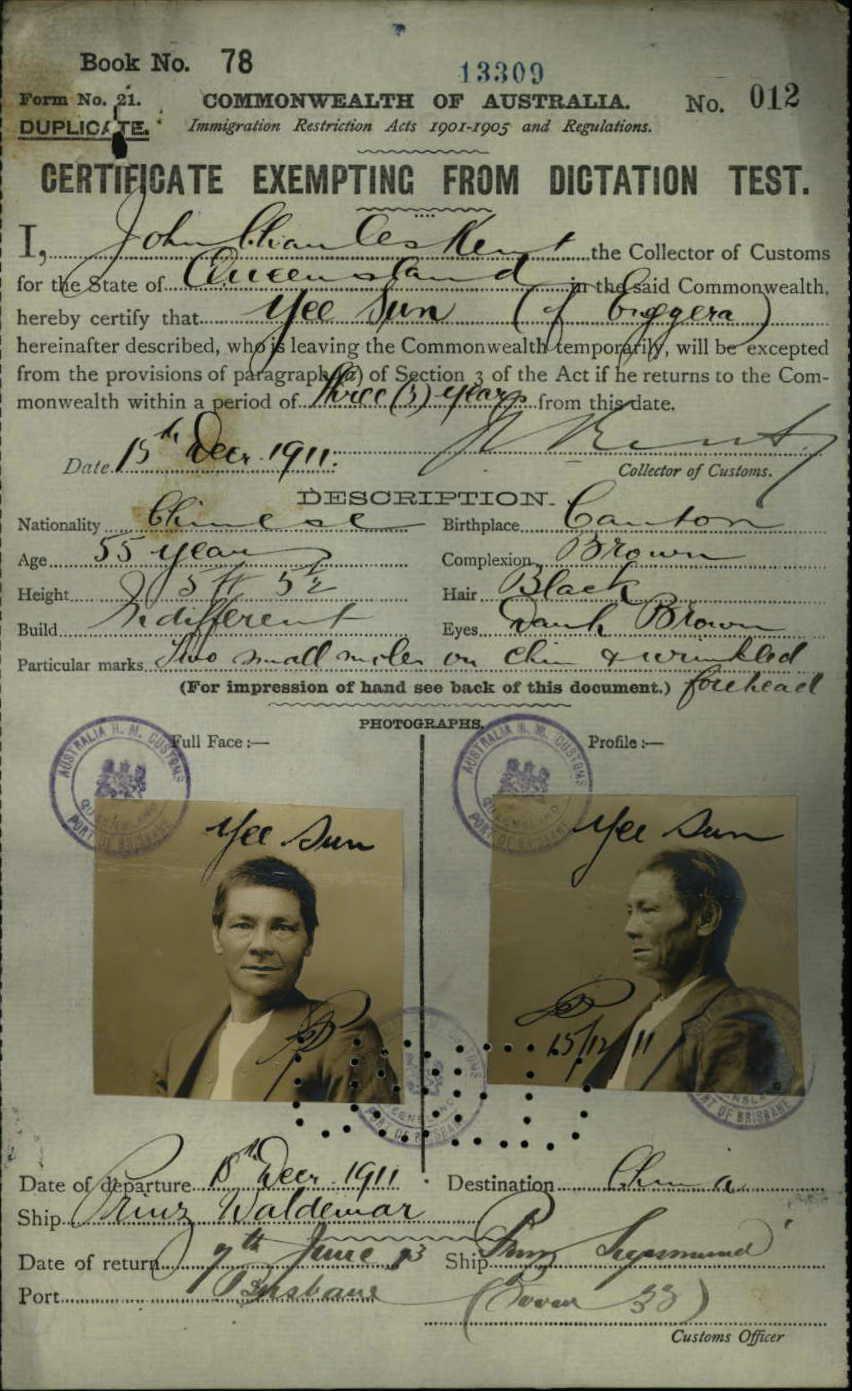 Book No. 78
13309
Form No. 21.
COMMONWEALTH OF AUSTRALIA.
No. 012
DUPLICATE.
Immigration Restriction Acts 1901-1905 and Regulations.
CERTIFICATE EXEMPTING FROM DICTATION TEST.
I, John Charles Kent the Collector of Customs
for the State of Queensland in the said Commonwealth,
hereby certify that Yee Sun (of Enoggera)
hereinafter described, who is leaving the Commonwealth temporarily, will be excepted
from the provisions of paragraph (a) of Section 3 of the Act if he returns to the Com-
monwealth within a period of Three (3) years from this date.
Date 15th Decr. 1911.
Collector of Customs.
DESCRIPTION.
Nationality Chinese
Birthplace Canton
Age 55 years
Complexion Brown
Height 5 ft 5½
Hair Black
Build Indifferent
Eyes Dark Brown
Particular marks Two small moles on chin & wrinkled
forehead
(For impression of hand see back of this document.)
PHOTOGRAPHS.
Full Face :—
Profile :—
AUSTRALIA H. M. CUSTOMS
QUEENSLAND
PORT OF BRISBANE
AUSTRALIA H. M. CUSTOMS
QUEENSLAND
PORT OF BRISBANE
Yee Sun
Yee Sun
15/12/11
PORT OF BRISBANE
PORT OF BRISBANE
Date of departure 15th Decr. 1911
Destination China
Ship Prinz Waldemar
Date of return 7th June 13
Ship Prinz Sigismund
Port Brisbane
Customs Officer